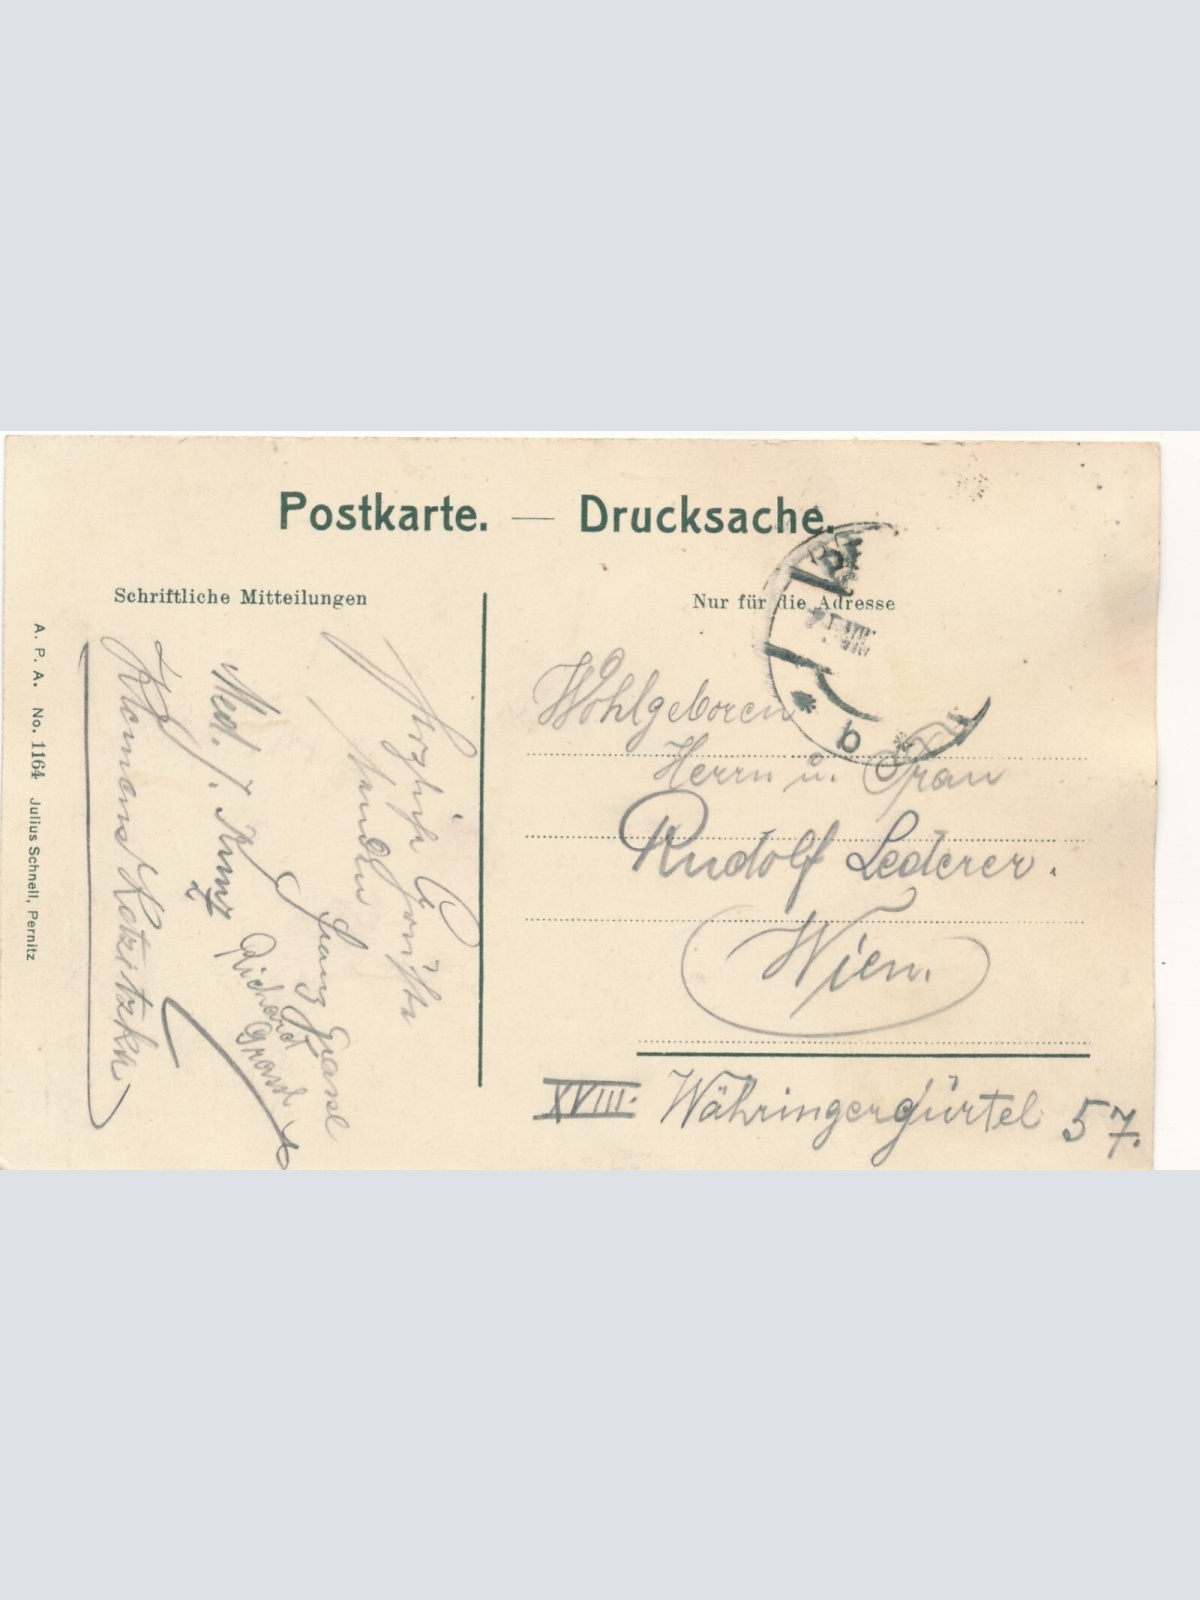 Postkarte. — Drucksache.
Schriftliche Mitteilungen
Nur für die Adresse
A. P. A. No. 1164 Julius Schnell, Pernitz
Herzliche Grüße
Franz Grassl
Richard Grassl
Med. Kunz
Wohlgeboren
Herrn u. Frau
Rudolf Lederer.
Wien.
XVIII. Währingergürtel 57.
b